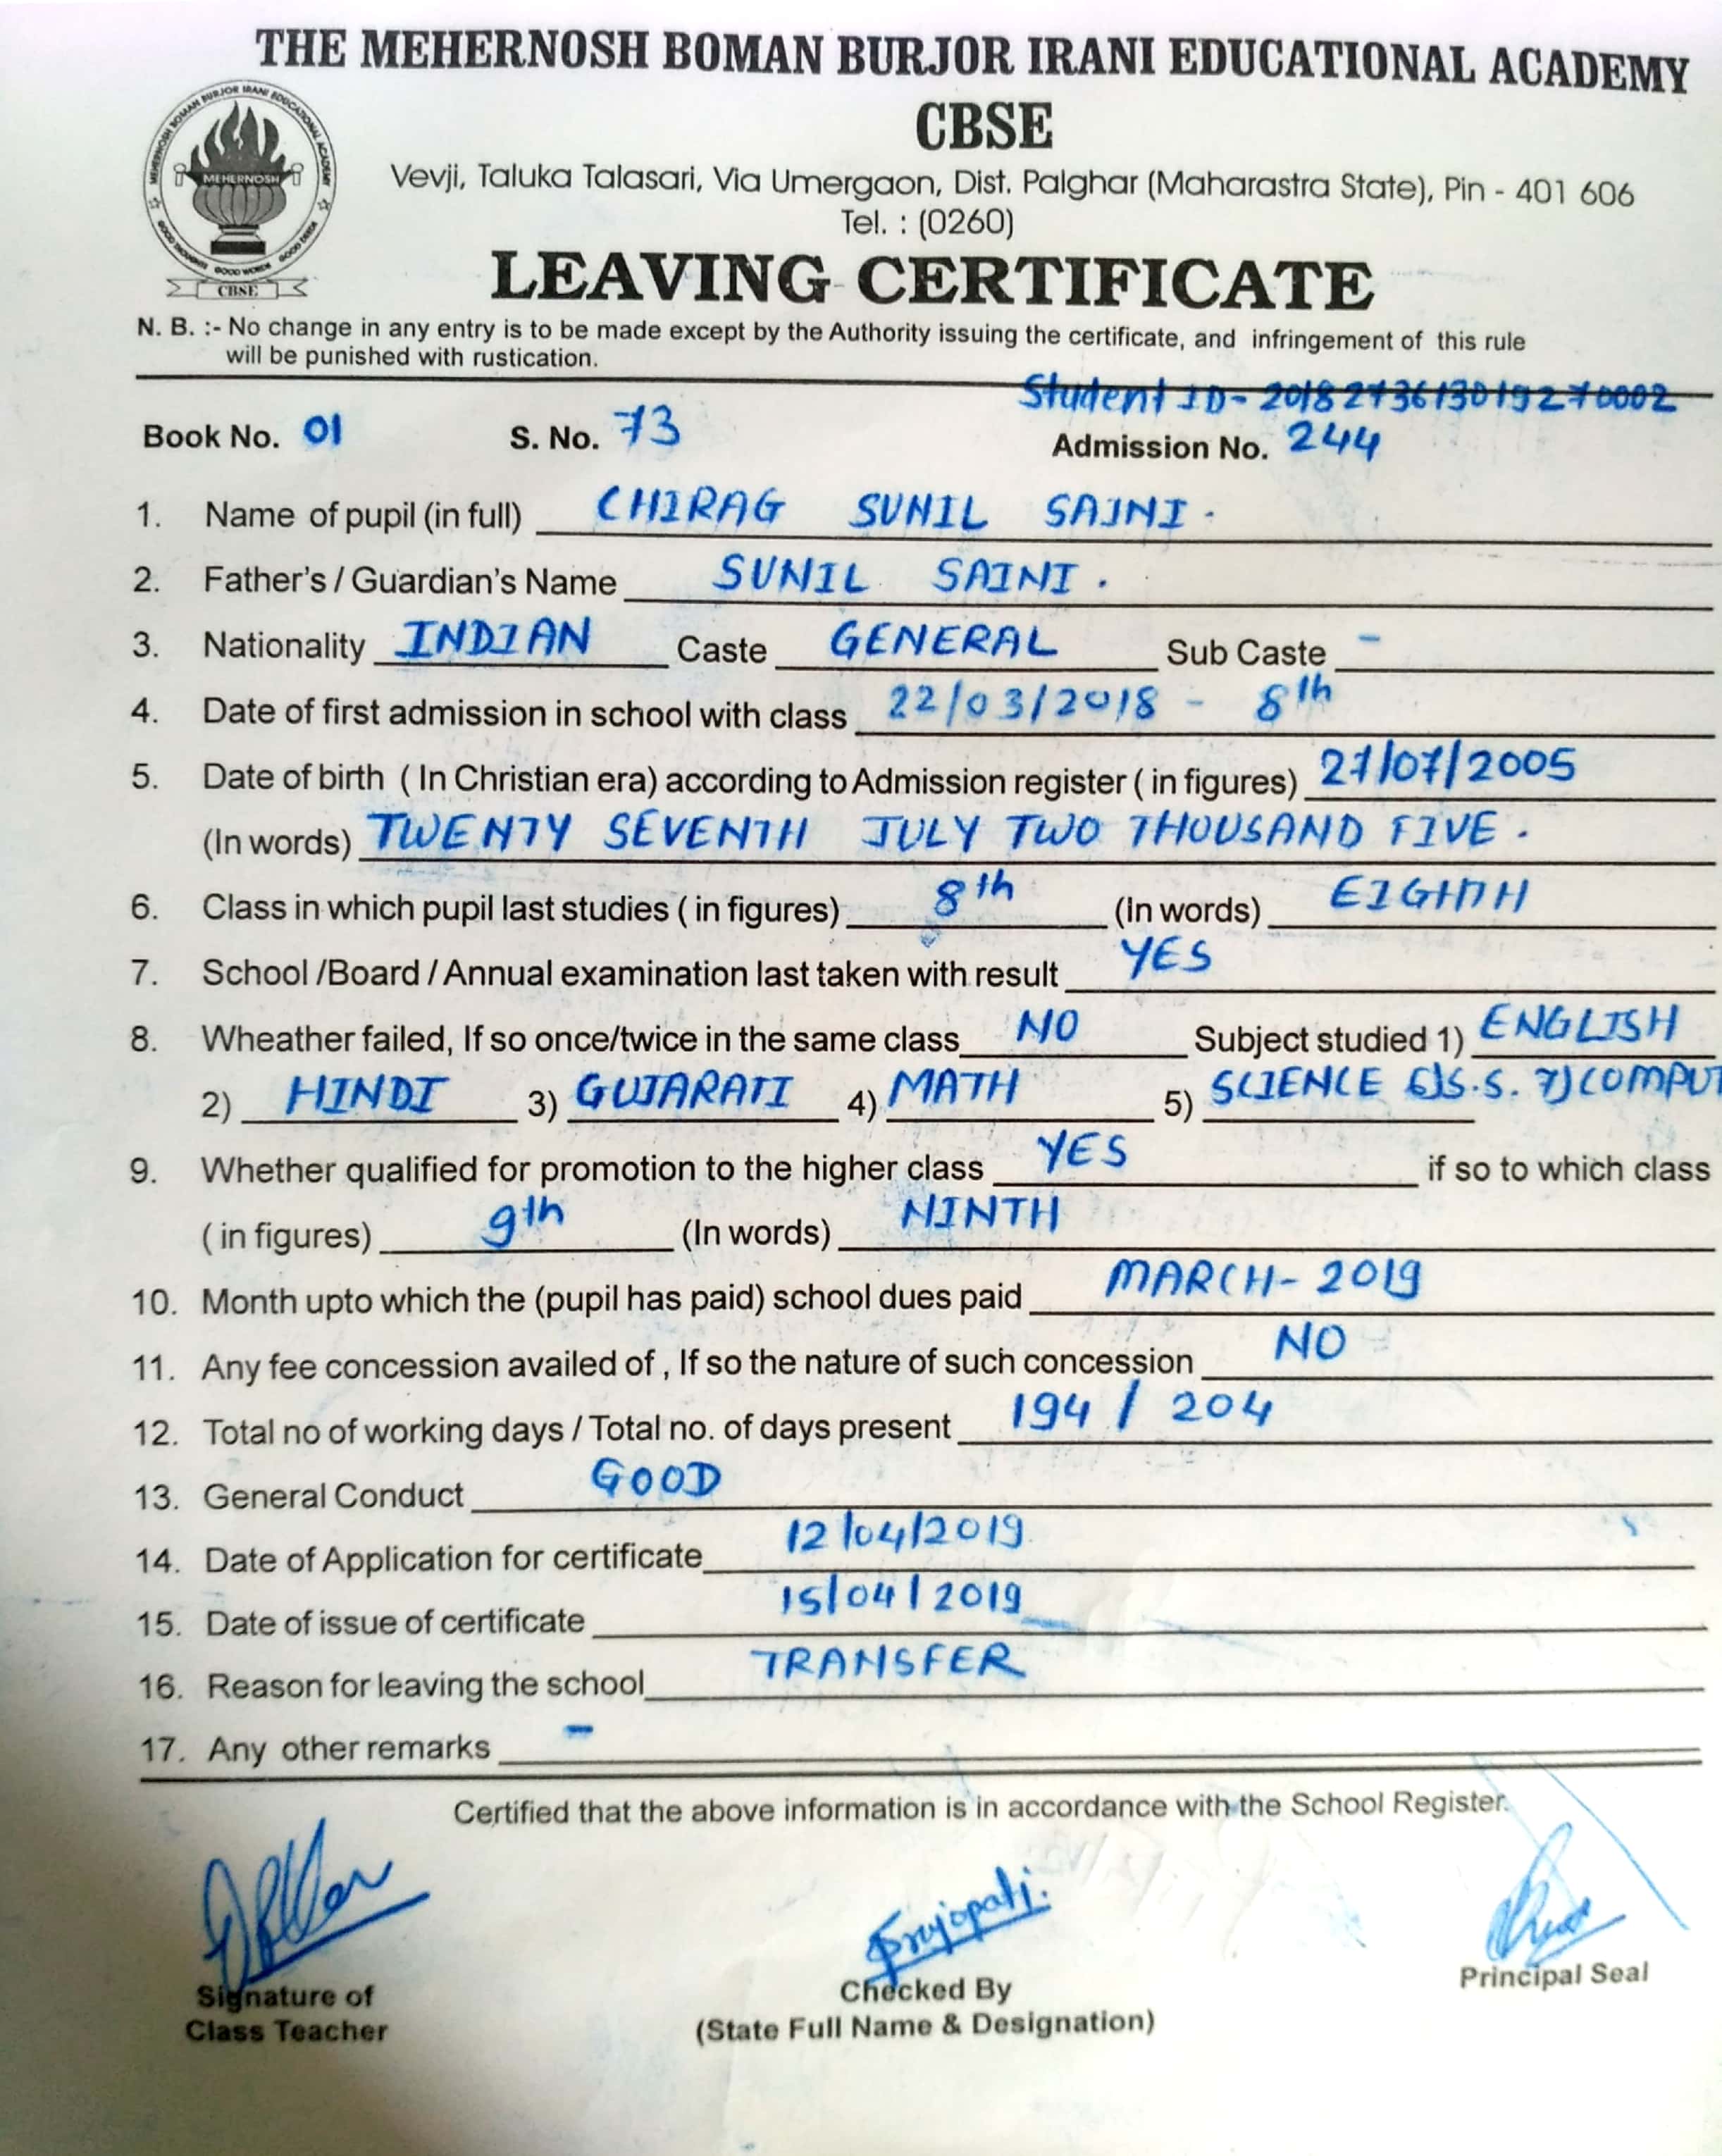 THE MEHERNOSH BOMAN BURJOR IRANI EDUCATIONAL ACADEMY
CBSE
MEHERNOSH BOMAN BURJOR IRANI EDUCATIONAL ACADEMY
MEHERNOSH
GOOD THOUGHTS GOOD WORDS GOOD DEEDS
CBSE
Vevji, Taluka Talasari, Via Umergaon, Dist. Palghar (Maharastra State), Pin - 401 606
Tel. : (0260)
LEAVING CERTIFICATE
N. B. :- No change in any entry is to be made except by the Authority issuing the certificate, and infringement of this rule
will be punished with rustication.
Student ID- 2018273613019270002
Book No. 01 S. No. 73 Admission No. 244
1. Name of pupil (in full) CHIRAG SUNIL SAINI.
2. Father's / Guardian's Name SUNIL SAINI.
3. Nationality INDIAN Caste GENERAL Sub Caste -
4. Date of first admission in school with class 22/03/2018 - 8th
5. Date of birth ( In Christian era) according to Admission register ( in figures) 27/07/2005
(In words) TWENTY SEVENTH JULY TWO THOUSAND FIVE.
6. Class in which pupil last studies ( in figures) 8th (In words) EIGHTH
7. School /Board / Annual examination last taken with result YES
8. Wheather failed, If so once/twice in the same class NO Subject studied 1) ENGLISH
2) HINDI 3) GUJARATI 4) MATH 5) SCIENCE 6)S.S. 7) COMPUT
9. Whether qualified for promotion to the higher class YES if so to which class
( in figures) 9th (In words) NINTH
10. Month upto which the (pupil has paid) school dues paid MARCH- 2019
11. Any fee concession availed of , If so the nature of such concession NO
12. Total no of working days / Total no. of days present 194 / 204
13. General Conduct GOOD
14. Date of Application for certificate 12/04/2019
15. Date of issue of certificate 15/04/2019
16. Reason for leaving the school TRANSFER
17. Any other remarks -
Certified that the above information is in accordance with the School Register.
Prajapati.
Signature of
Class Teacher
Checked By
(State Full Name & Designation)
Principal Seal